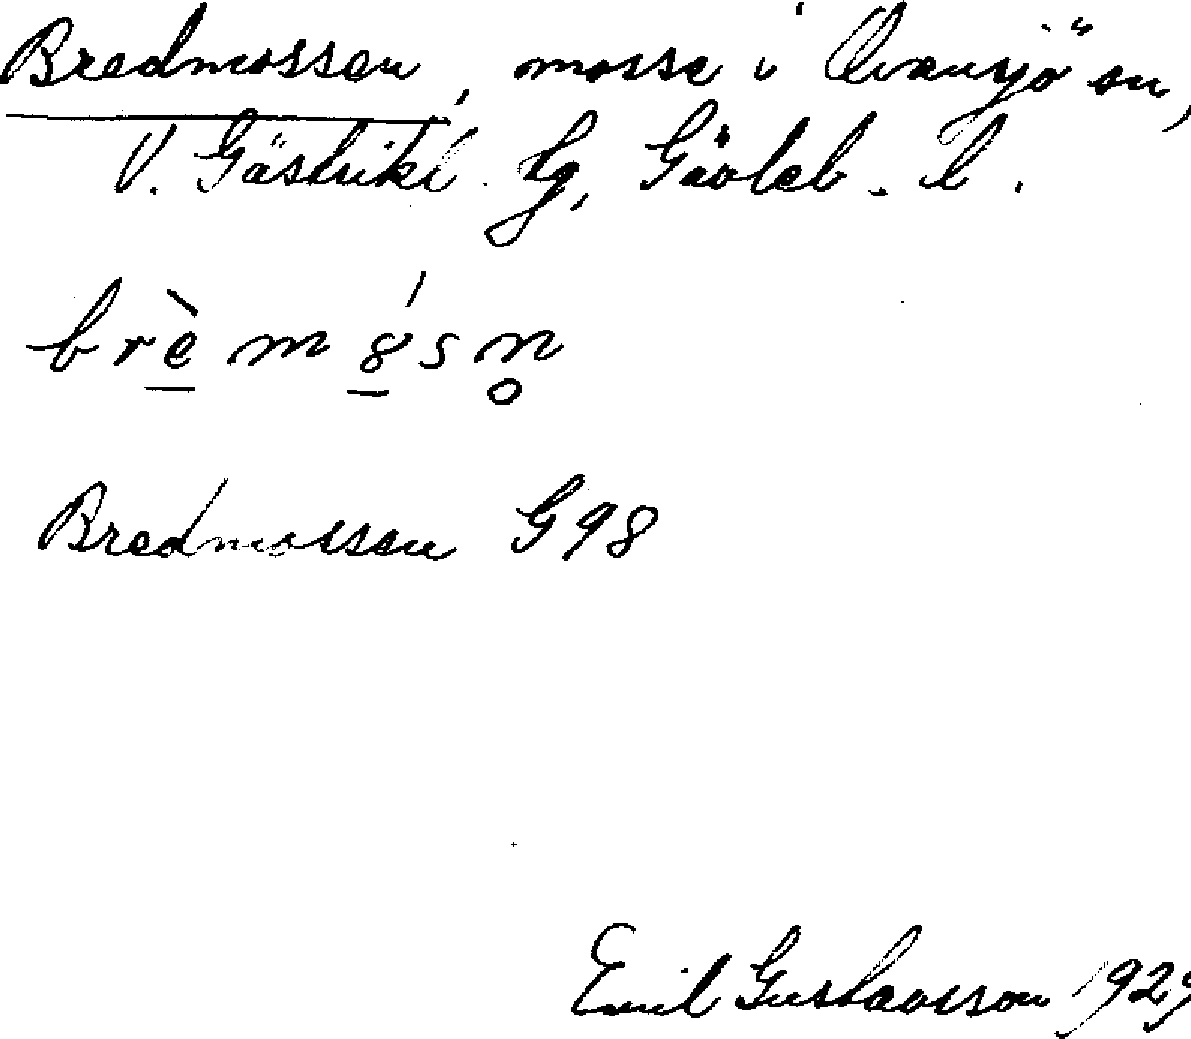 Bredmossen, mosse i Ovansjö sn,
V. Gästrikl. tg, Gävleb. l.
brèmósn̥
Bredmossen G98
Emil Gustavsson 1929